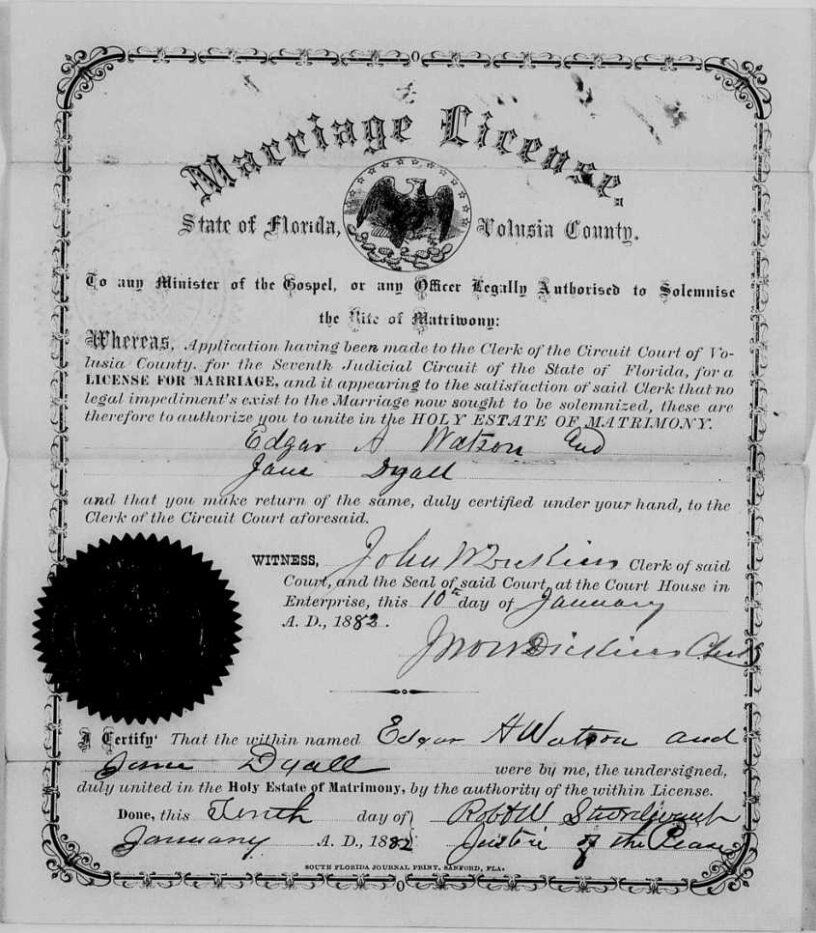 Marriage License.
State of Florida, Volusia County.
To any Minister of the Gospel, or any Officer Legally Authorised to Solemnise
the Rite of Matrimony:
Whereas, Application having been made to the Clerk of the Circuit Court of Vo-
lusia County, for the Seventh Judicial Circuit of the State of Florida, for a
LICENSE FOR MARRIAGE, and it appearing to the satisfaction of said Clerk that no
legal impediment's exist to the Marriage now sought to be solemnized, these are
therefore to authorize you to unite in the HOLY ESTATE OF MATRIMONY.
Edgar A Watson and
Jane Dyall
and that you make return of the same, duly certified under your hand, to the
Clerk of the Circuit Court aforesaid.
WITNESS, John W Dickins Clerk of said
Court, and the Seal of said Court, at the Court House in
Enterprise, this 10th day of January
A. D., 1882.
Jno W Dickins Clerk
I Certify That the within named Edgar A Watson and
Jane Dyall were by me, the undersigned,
duly united in the Holy Estate of Matrimony, by the authority of the within License.
Done, this Tenth day of Robt W
January A. D., 1882 Justice of the Peace
SOUTH FLORIDA JOURNAL PRINT, SANFORD, FLA.